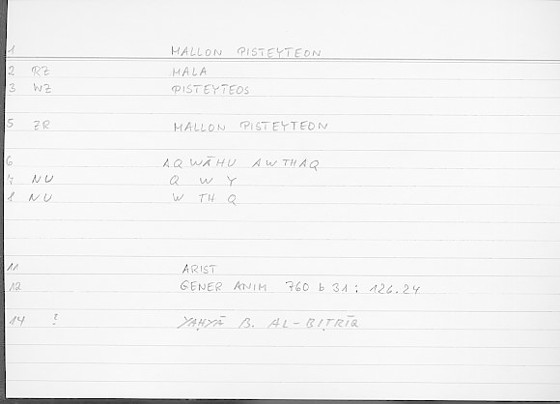 1 MALLON PISTEYTEON
2 RZ MALA
3 WZ PISTEYTEOS
5 ZR MALLON PISTEYTEON
6 AQWĀHU AWTHAQ
7 NU Q W Y
8 NU W TH Q
11 ARIST
12 GENER ANIM 760 b 31 : 126.24
14 ! YAḤYĀ B. AL-BIṬRĪQ